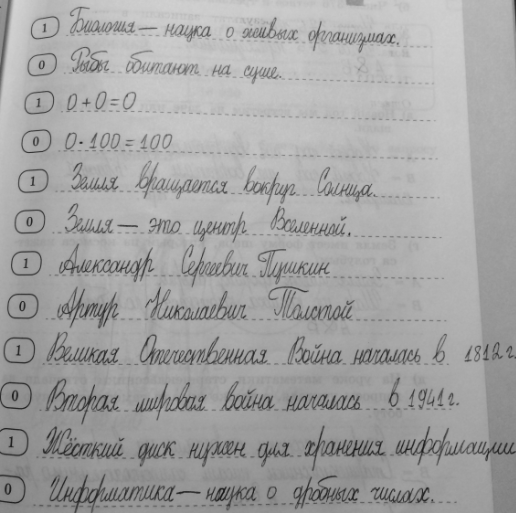 1 Биология — наука о живых организмах.
0 Рыбы обитают на суше.
1 0+0=0
0 0·100=100
1 Земля вращается вокруг Солнца.
0 Земля — это центр Вселенной.
1 Александр Сергеевич Пушкин
0 Артур Николаевич Толстой
1 Великая Отечественная Война началась в 1812 г.
0 Вторая мировая война началась в 1941 г.
1 Жёсткий диск нужен для хранения информации
0 Информатика — наука о дробных числах.